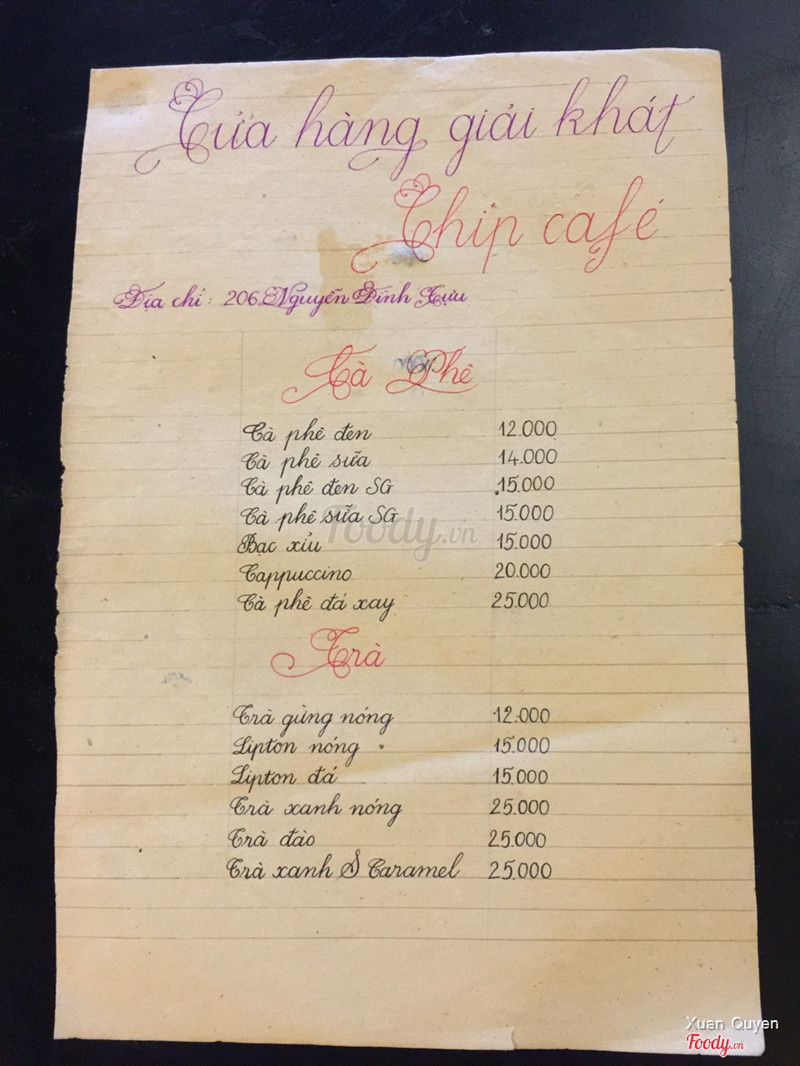 Cửa hàng giải khát
Chip café
Địa chỉ: 206 Nguyễn Đình Tựu
Cà Phê
Cà phê đen 12.000
Cà phê sữa 14.000
Cà phê đen SG 15.000
Cà phê sữa SG 15.000
Bạc xỉu 15.000
Cappuccino 20.000
Cà phê đá xay 25.000
Trà
Trà gừng nóng 12.000
Lipton nóng 15.000
Lipton đá 15.000
Trà xanh nóng 25.000
Trà đào 25.000
Trà xanh S Caramel 25.000
Foody.vn
Xuan Quyen
Foody.vn